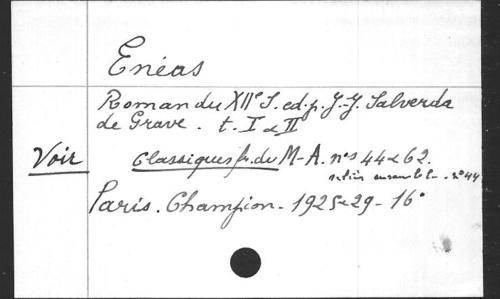 Enéas
Roman du XIIe S. ed. p. J.-J. Salverda
de Grave. t. I & II
Voir Classiques fr. du M-A. nos 44 & 62.
reliés ensemble. no 44
Paris. Champion. 1925 & 29 - 16°